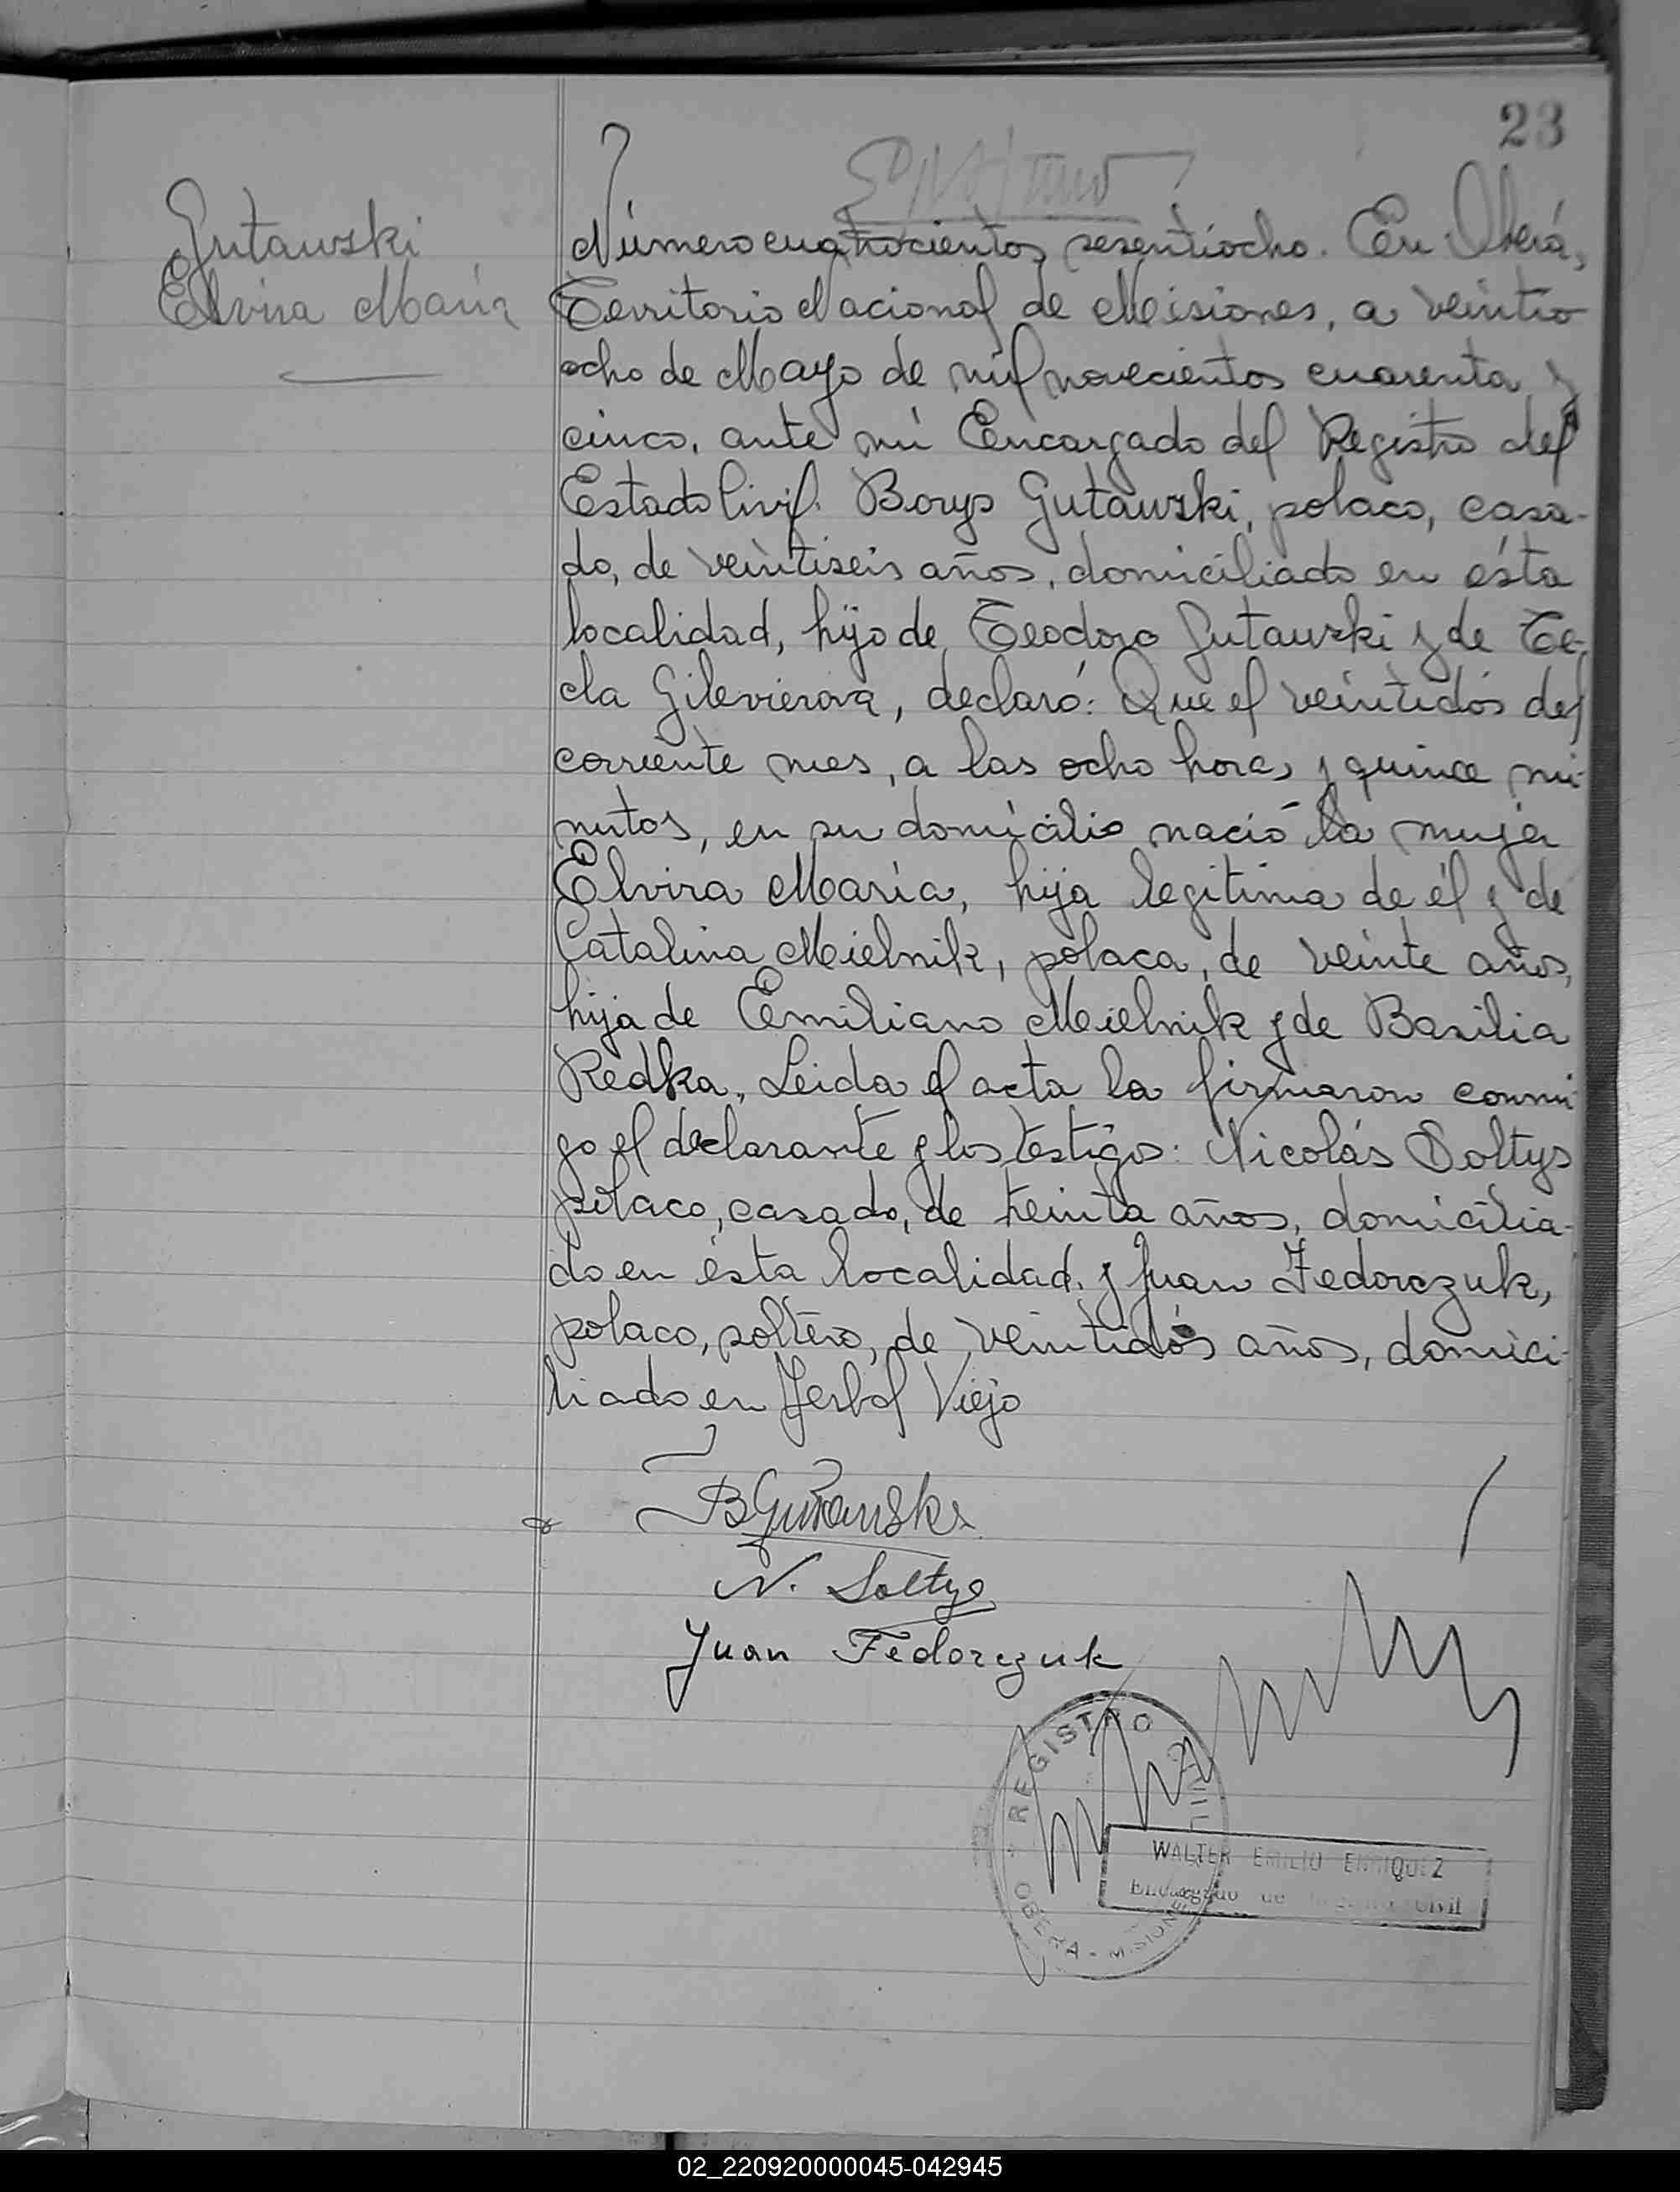 23
Gutawski
Elvira María
Número cuatrocientos sesentiocho. En Oberá,
Territorio Nacional de Misiones, a veintio
ocho de Mayo de mil novecientos cuarenta y
cinco, ante mi Encargado del Registro del
Estado Civil. Borys Gutawski, polaco, casa-
do, de veintiseis años, domiciliado en ésta
localidad, hijo de Teodoro Gutawski y de Te-
cla Gilevierova, declaró: Que el veintidós del
corriente mes, a las ocho horas y quince mi-
nutos, en su domicilio nació la mujer
Elvira María, hija legitima de él y de
Catalina Mielnik, polaca, de veinte años,
hija de Emiliano Mielnik y de Basilia
Redka. Leida el acta la firmaron conmi
go el declarante y los testigos: Nicolás Soltys
polaco, casado, de treinta años, domicilia-
do en ésta localidad. y Juan Fedorczuk,
polaco, soltero, de veintidós años, domici-
liado en Yerbal Viejo
B Gutawski
N. Soltys
Juan Fedorczuk
REGISTRO CIVIL
OBERA - MISIONES
WALTER EMILIO ENRIQUEZ
Encargado de Registro Civil
02_220920000045-042945